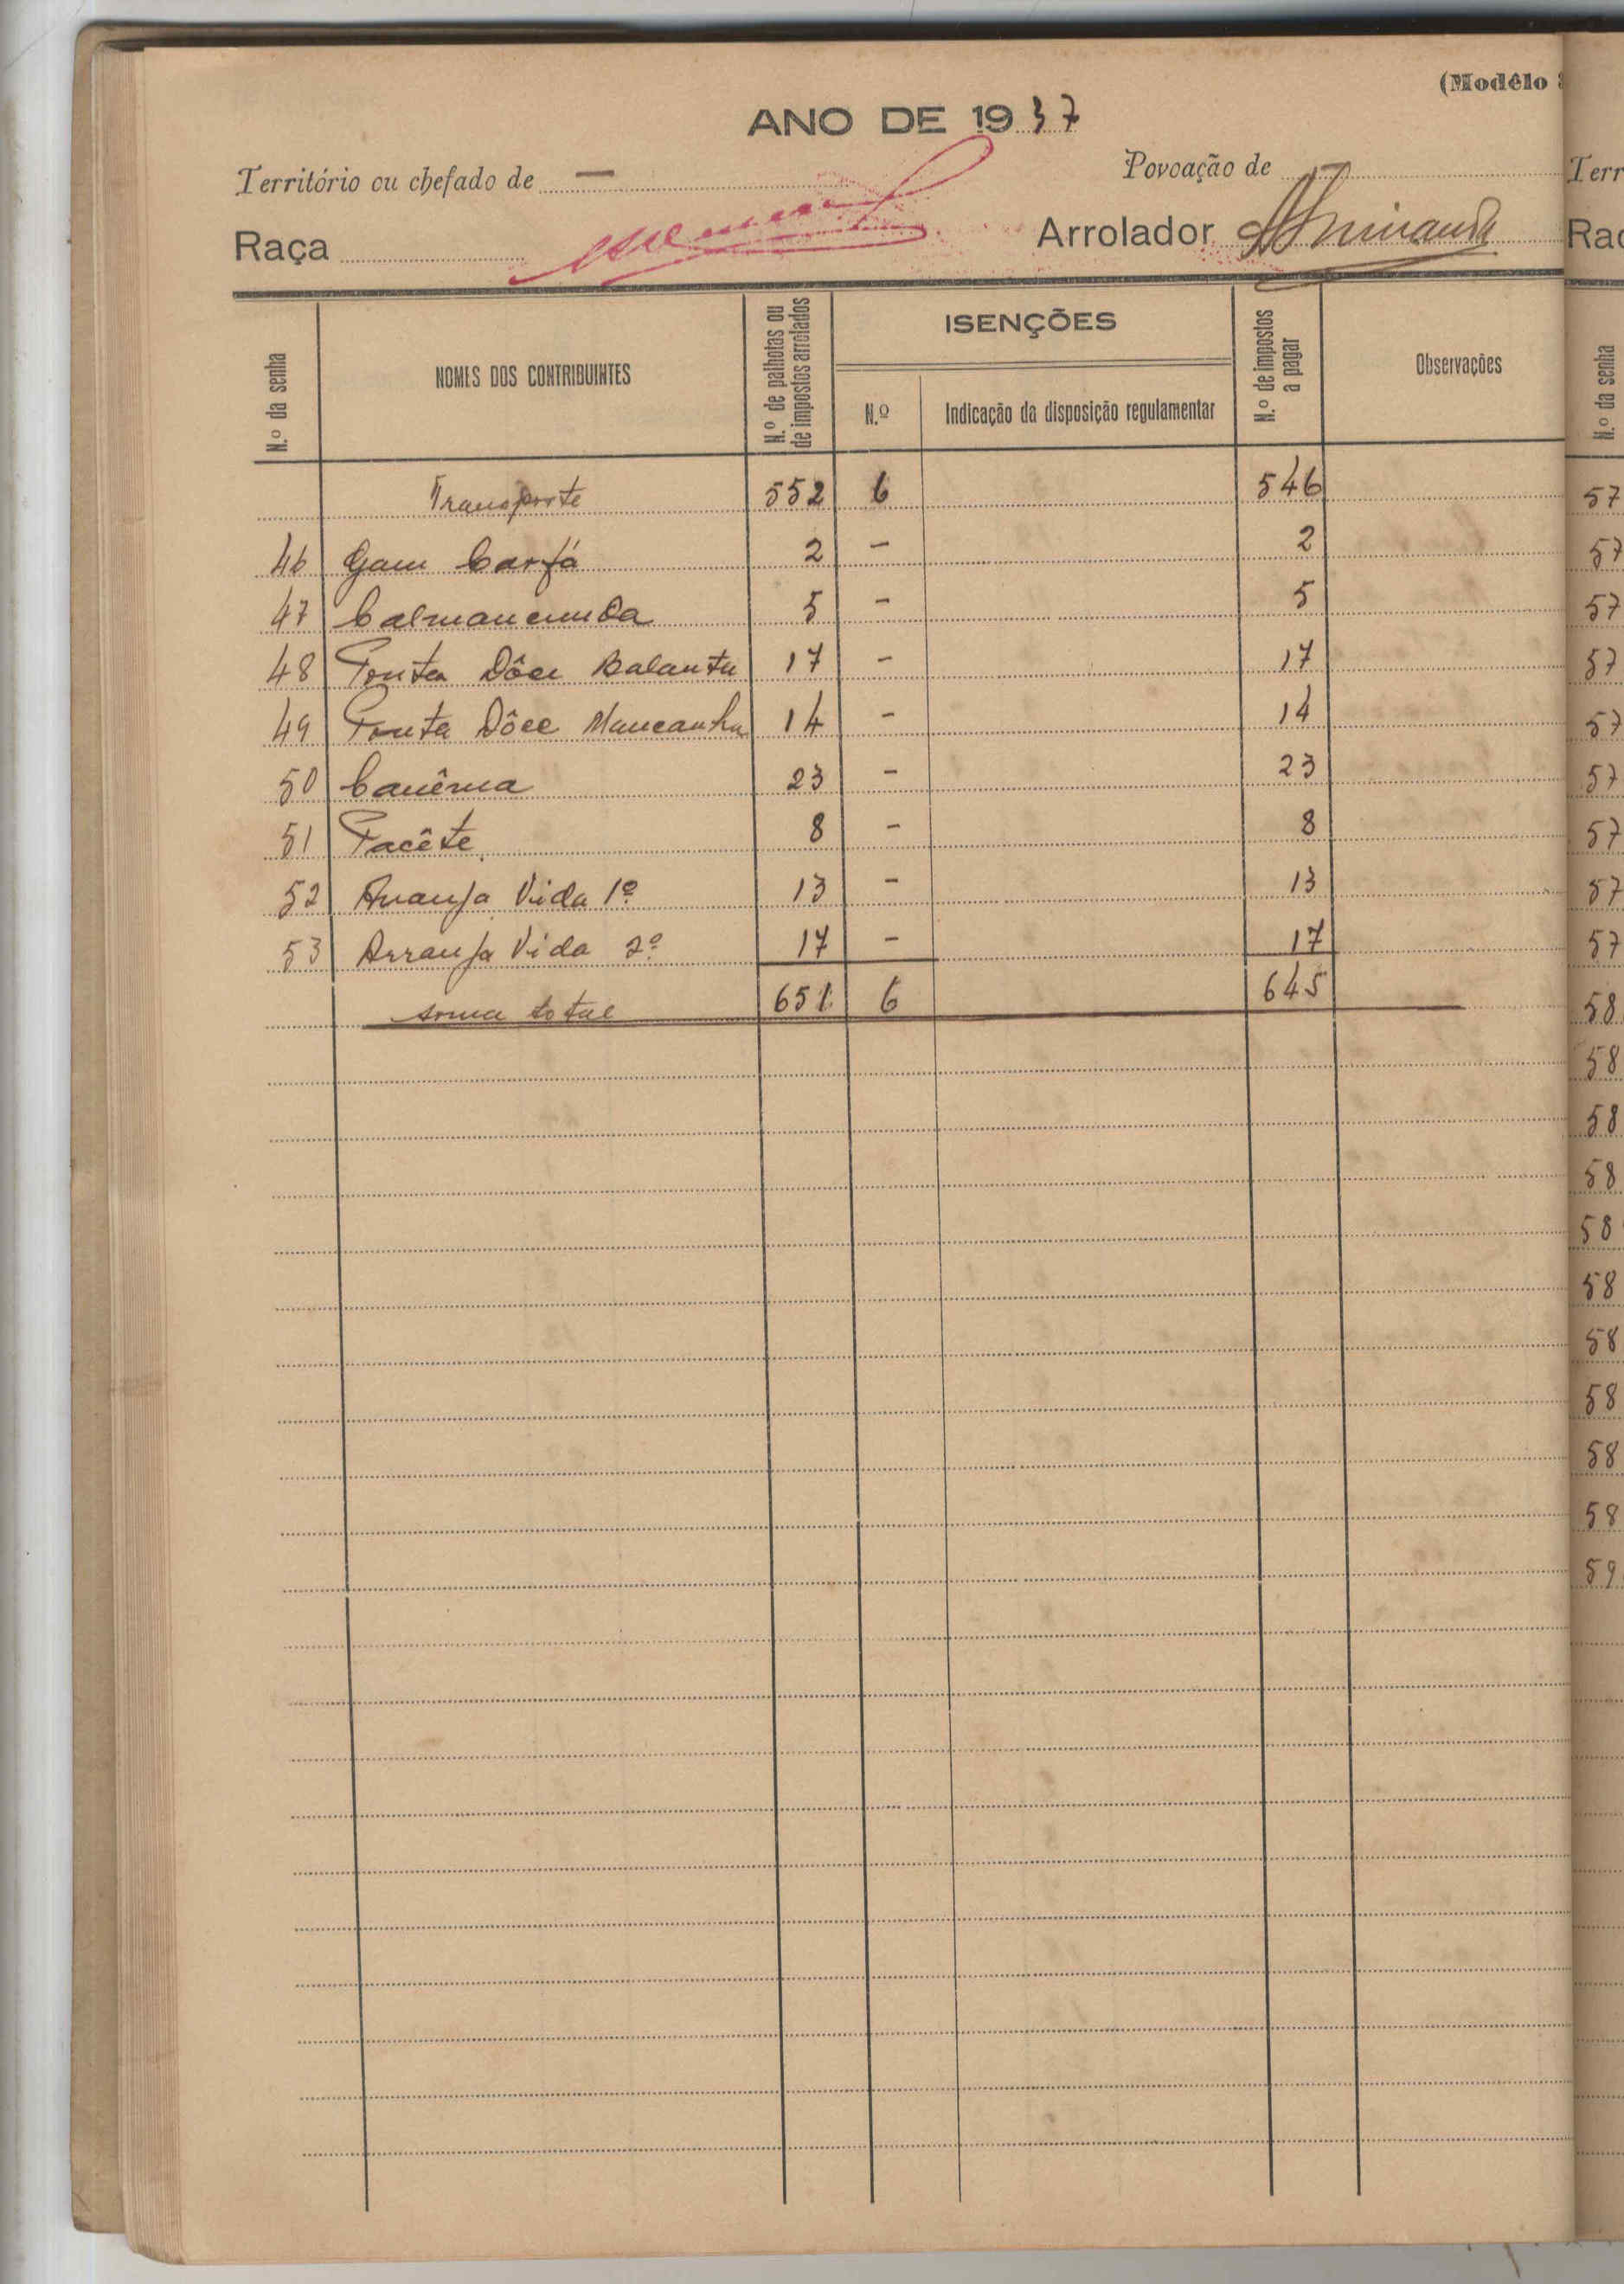 (Modêlo
ANO DE 1937
Território ou chefado de —
Povoação de
Raça
Arrolador
N.º da senha
NOMES DOS CONTRIBUINTES
N.º de palhotas ou de impostos arrolados
ISENÇÕES
N.º
Indicação da disposição regulamentar
N.º de impostos a pagar
Observações
Transporte 552 6 546
46 Gam Carfá 2 – 2
47 Calmancunda 5 – 5
48 Ponta Dôce Balanta 17 – 17
49 Ponta Dôce Mancanha 14 – 14
50 Canêma 23 – 23
51 Pacête 8 – 8
52 Arranja Vida 1º 13 – 13
53 Arranja Vida 2º 17 – 17
soma total 651 6 645
Terr
Rac
N.º da senha
57
57
57
57
57
57
57
57
57
58
58
58
58
58
58
58
58
58
58
59